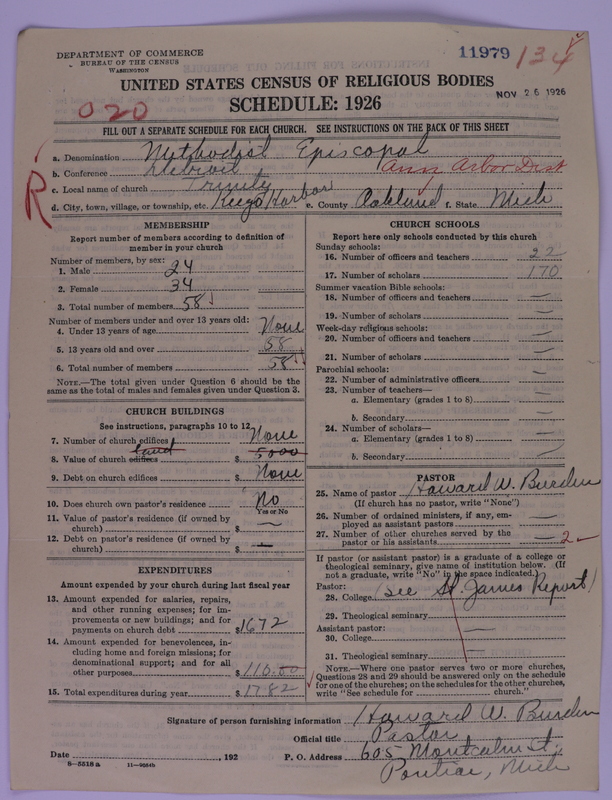 DEPARTMENT OF COMMERCE
BUREAU OF THE CENSUS
WASHINGTON
11979 134
UNITED STATES CENSUS OF RELIGIOUS BODIES
NOV 26 1926
SCHEDULE: 1926
020
FILL OUT A SEPARATE SCHEDULE FOR EACH CHURCH. SEE INSTRUCTIONS ON THE BACK OF THIS SHEET
R
a. Denomination Methodist Episcopal
b. Conference Detroit Ann Arbor Dist
c. Local name of church Trinity
d. City, town, village, or township, etc. Keego Harbor e. County Oakland f. State Mich
MEMBERSHIP
Report number of members according to definition of
member in your church
Number of members, by sex:
1. Male 24
2. Female 34
3. Total number of members 58
Number of members under and over 13 years old:
4. Under 13 years of age None
5. 13 years old and over 58
6. Total number of members 58
NOTE.—The total given under Question 6 should be the
same as the total of males and females given under Question 3.
CHURCH BUILDINGS
See instructions, paragraphs 10 to 12
7. Number of church edifices None
land
8. Value of church edifices $ 5000
9. Debt on church edifices $ None
10. Does church own pastor's residence No
Yes or No
11. Value of pastor's residence (if owned by
church) $ —
12. Debt on pastor's residence (if owned by
church) $ —
EXPENDITURES
Amount expended by your church during last fiscal year
13. Amount expended for salaries, repairs,
and other running expenses; for im-
provements or new buildings; and for
payments on church debt $ 1672
14. Amount expended for benevolences, in-
cluding home and foreign missions; for
denominational support; and for all
other purposes $ 110.00
15. Total expenditures during year $ 1782
CHURCH SCHOOLS
Report here only schools conducted by this church
Sunday schools:
16. Number of officers and teachers 22
17. Number of scholars 170
Summer vacation Bible schools:
18. Number of officers and teachers —
19. Number of scholars —
Week-day religious schools:
20. Number of officers and teachers —
21. Number of scholars —
Parochial schools:
22. Number of administrative officers —
23. Number of teachers—
a. Elementary (grades 1 to 8) —
b. Secondary —
24. Number of scholars—
a. Elementary (grades 1 to 8) —
b. Secondary —
PASTOR
25. Name of pastor Howard W. Burden
(If church has no pastor, write "None")
26. Number of ordained ministers, if any, em-
ployed as assistant pastors —
27. Number of other churches served by the
pastor or his assistants — 2
If pastor (or assistant pastor) is a graduate of a college or
theological seminary, give name of institution below. (If
not a graduate, write "No" in the space indicated.)
Pastor: (see St. James Report)
28. College
29. Theological seminary —
Assistant pastor:
30. College —
31. Theological seminary —
NOTE.—Where one pastor serves two or more churches,
Questions 28 and 29 should be answered only on the schedule
for one of the churches; on the schedules for the other churches,
write "See schedule for church."
Signature of person furnishing information Howard W. Burden
Official title Pastor
Date , 192 P. O. Address 605 Montcalm St.
Pontiac, Mich
8—5518 a